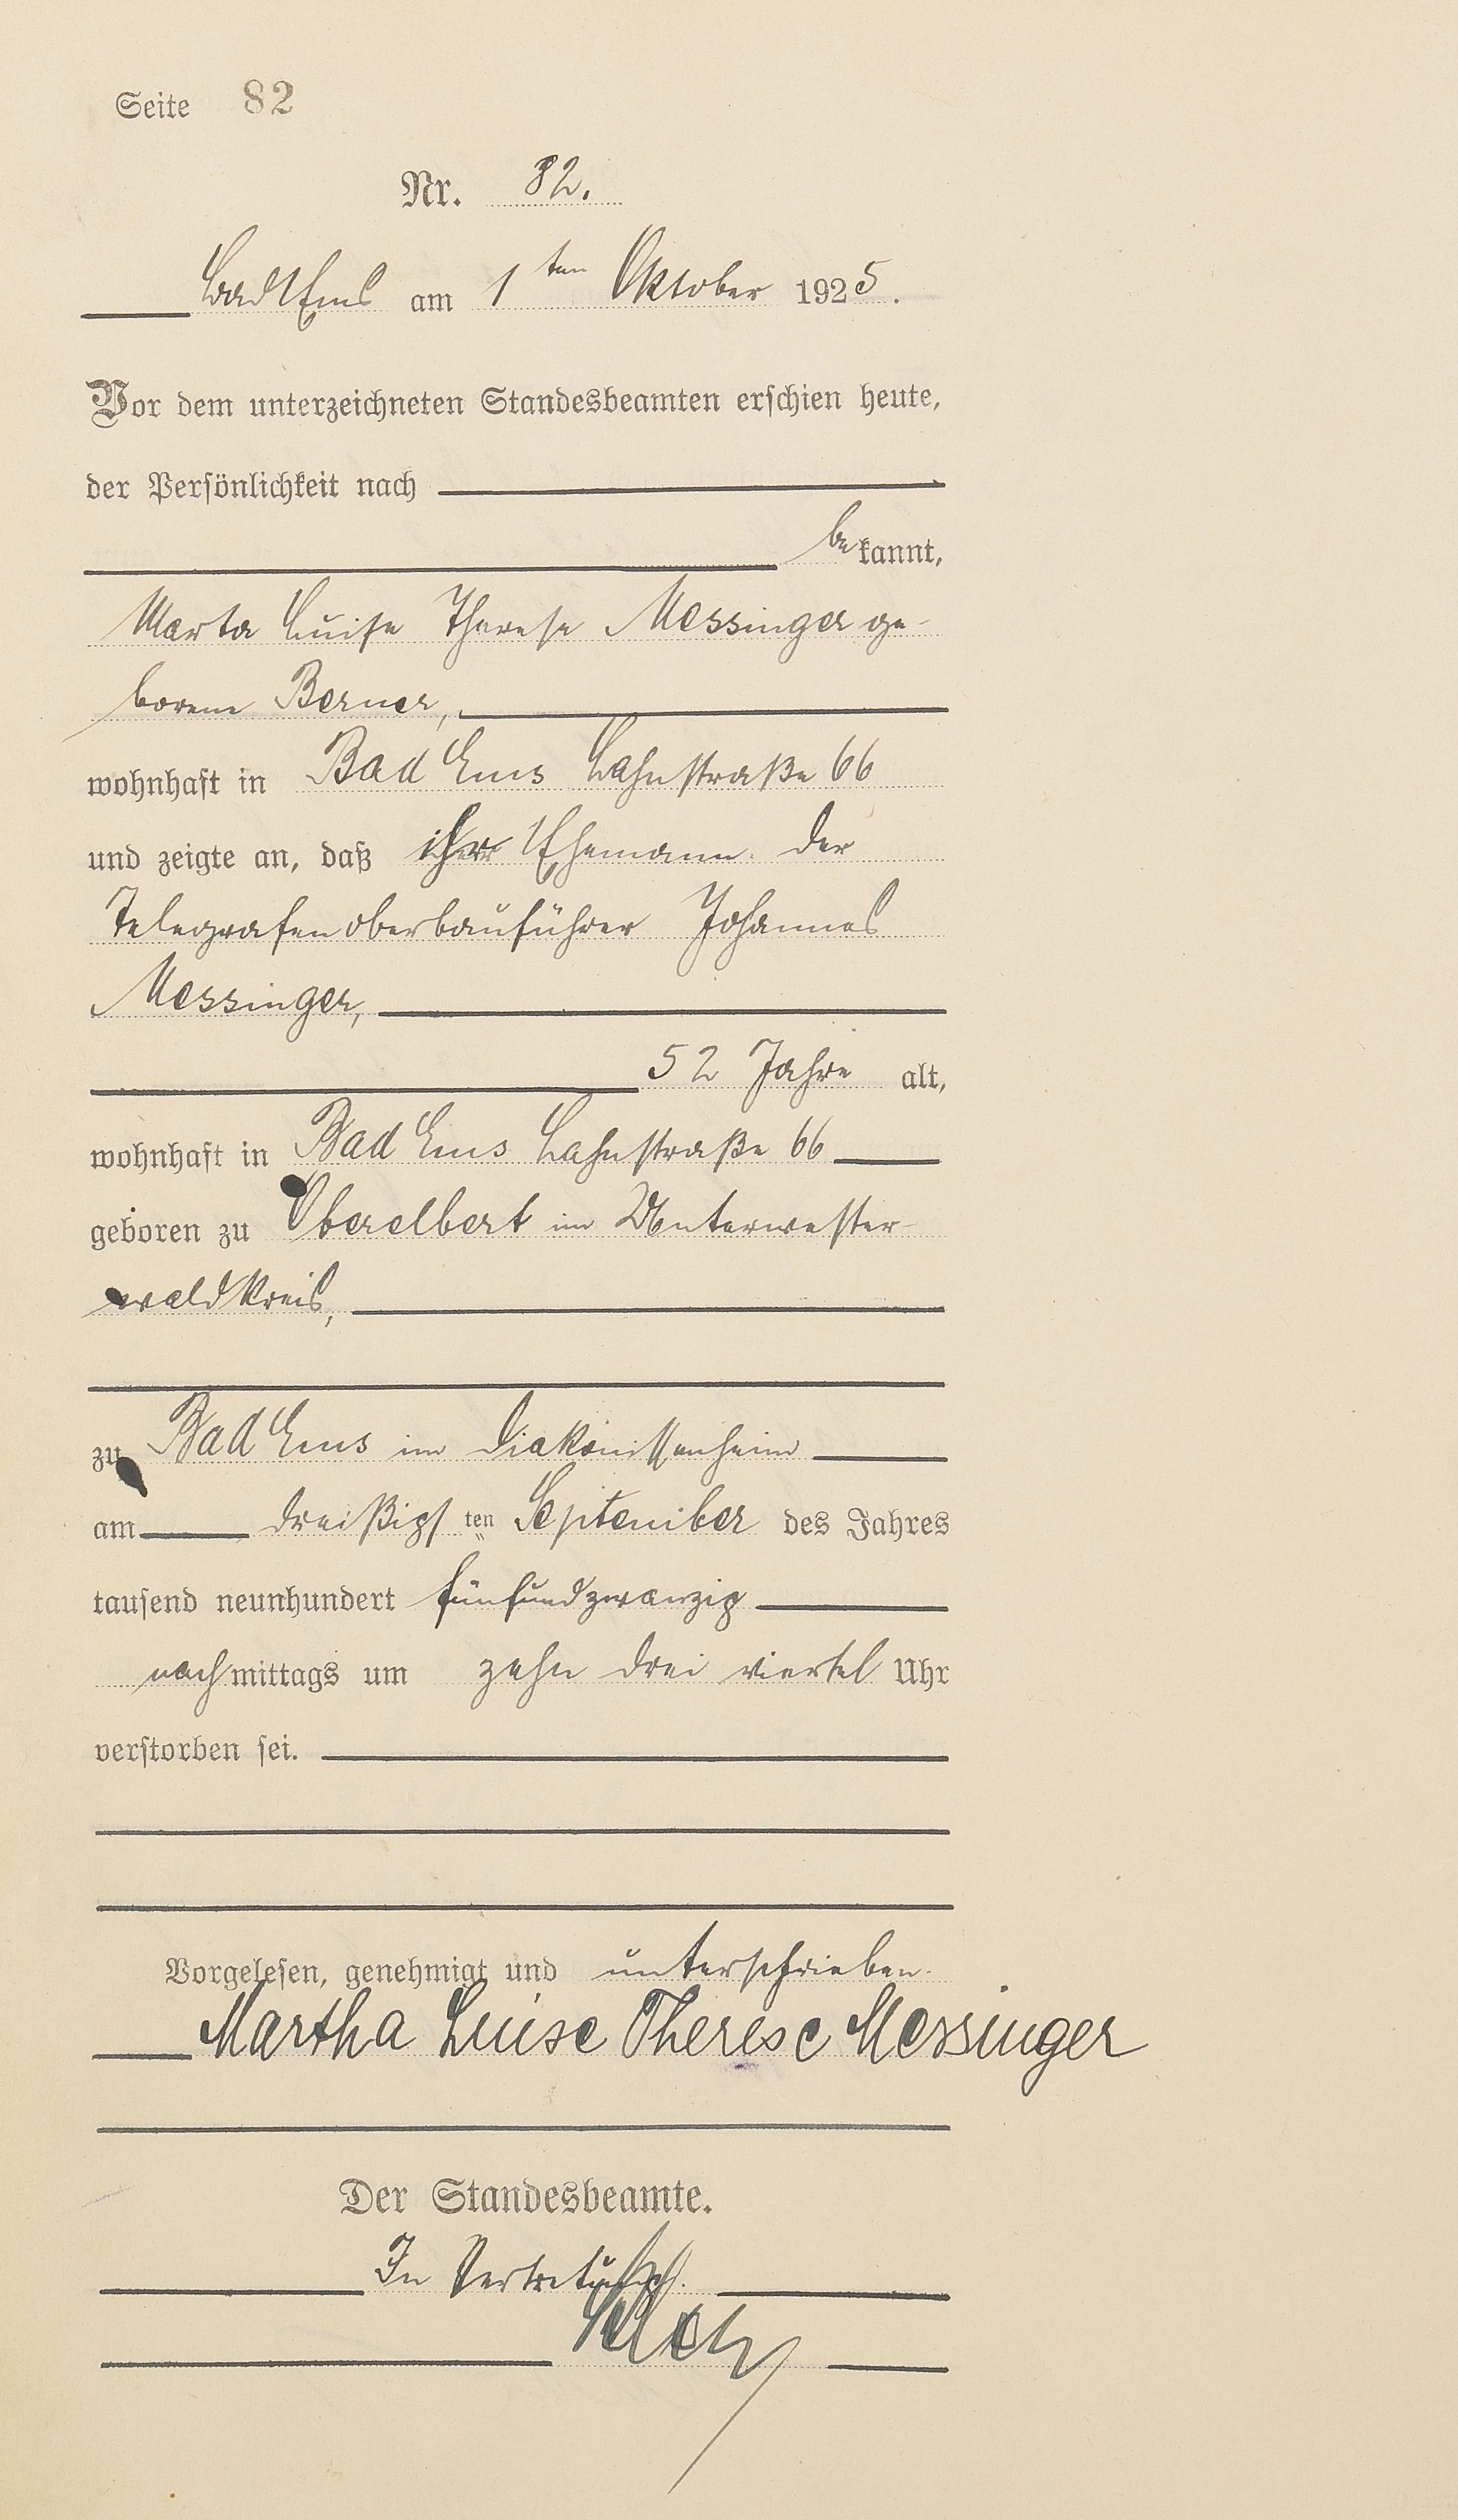 Seite 82
Nr. 82.
Bad Ems am 1ten Oktober 1925.
Vor dem unterzeichneten Standesbeamten erschien heute,
der Persönlichkeit nach
bekannt,
Marta Luise Therese Messinger ge-
borene Berner,
wohnhaft in Bad Ems Lahnstraße 66
und zeigte an, daß ihr Ehemann der
Telegrafenoberbauführer Johannes
Messinger,
52 Jahre alt,
wohnhaft in Bad Ems Lahnstraße 66
geboren zu Oberelbert im Unterwester-
waldkreis,
zu Bad Ems im Diakonissenheim
am dreißigsten September des Jahres
tausend neunhundert fünfundzwanzig
nachmittags um zehn drei viertel Uhr
verstorben sei.
Vorgelesen, genehmigt und unterschrieben.
Martha Luise Therese Messinger
Der Standesbeamte.
In Vertretung.